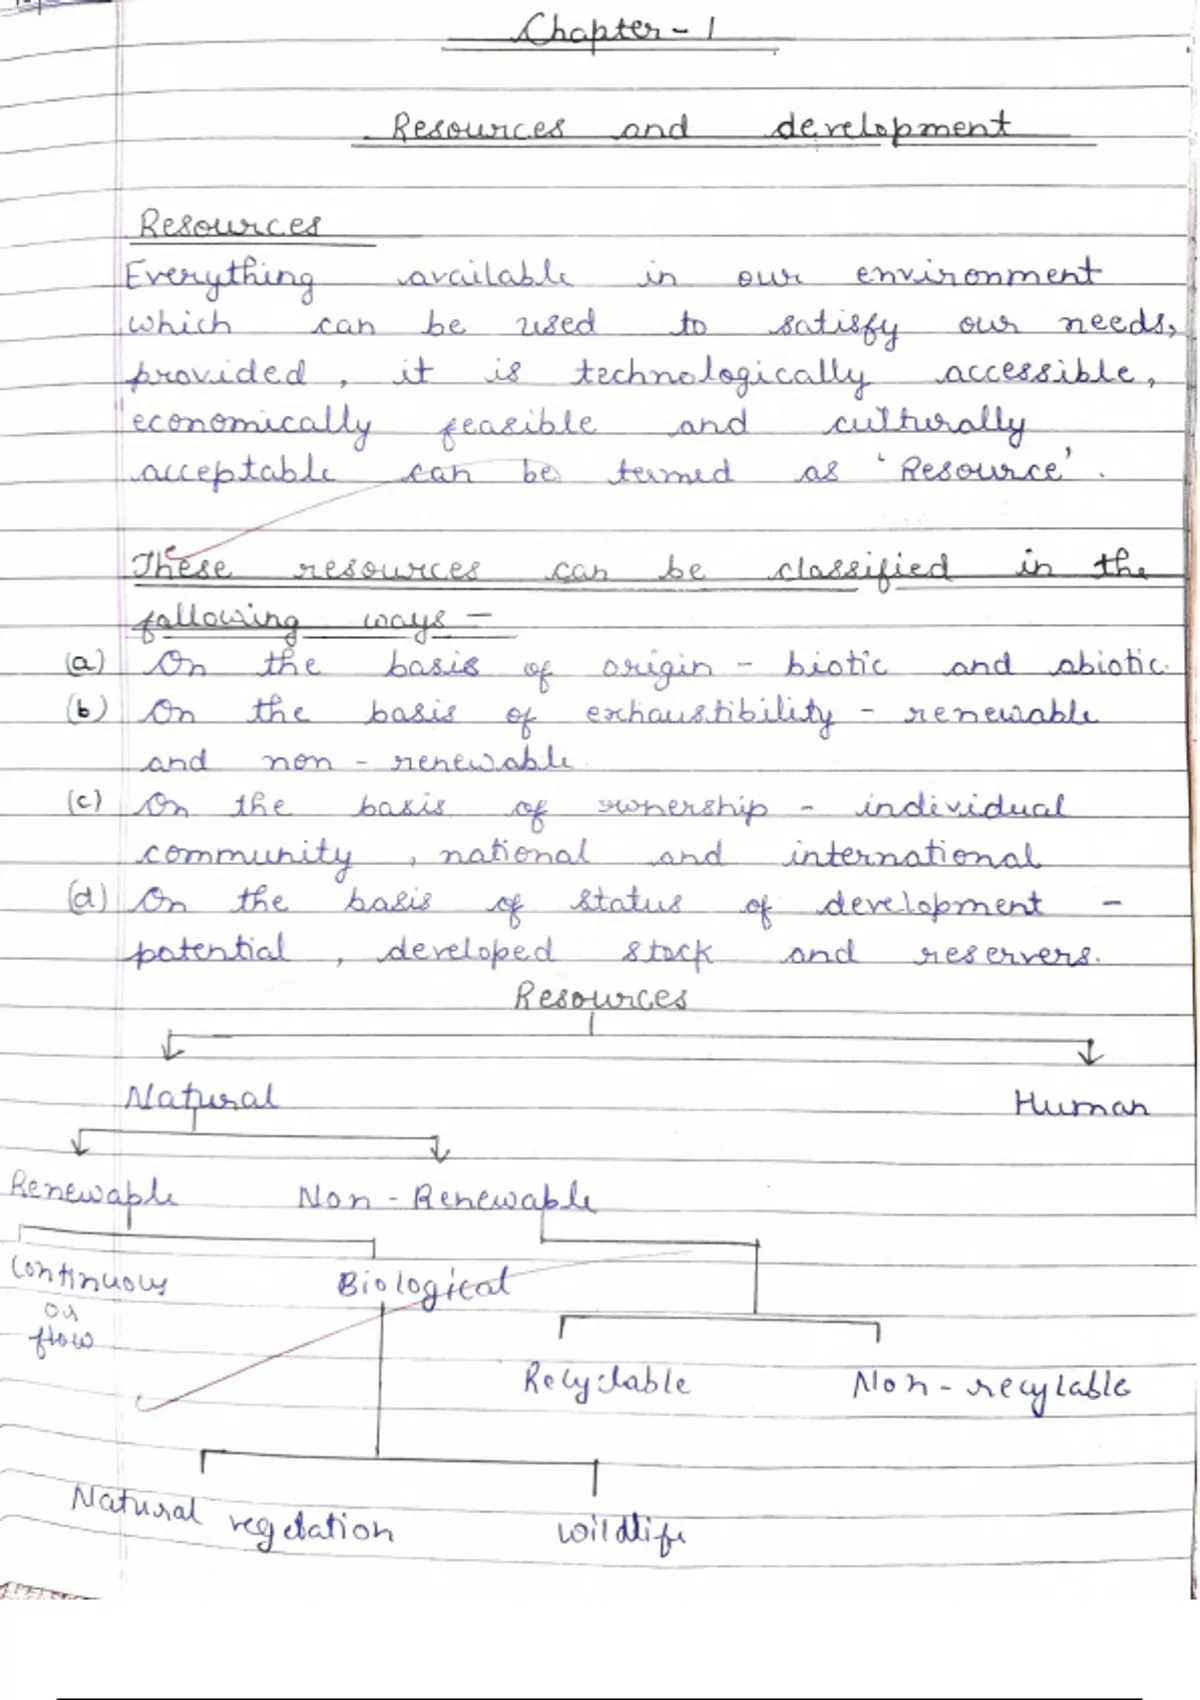 Chapter - 1
Resources and development
Resources
Everything available in our environment
which can be used to satisfy our needs,
provided, it is technologically accessible,
economically feasible and culturally
acceptable can be termed as 'Resource'.
These resources can be classified in the
following ways -
(a) On the basis of origin - biotic and abiotic.
(b) On the basis of exhaustibility - renewable
and non - renewable
(c) On the basis of ownership - individual
community, national and international
(d) On the basis of status of development -
potential, developed stock and reservers.
Resources
Natural Human
Renewable Non - Renewable
Continuous Biological
or
flow
Recyclable Non - recylable
Natural vegetation wildlife